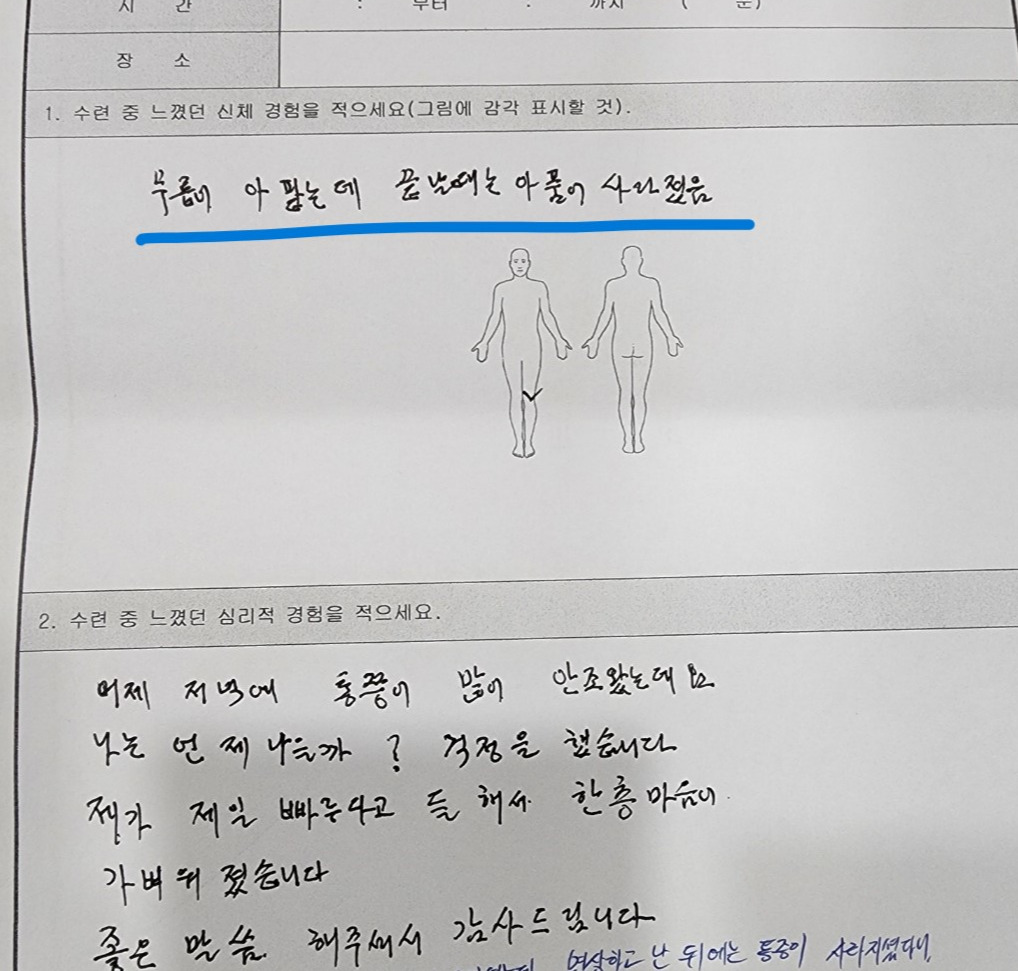 시 간 : 부터 : 까지 ( 분)
장 소
1. 수련 중 느꼈던 신체 경험을 적으세요(그림에 감각 표시할 것).
무릎이 아팠는데 끝날때는 아품이 사라졌음
2. 수련 중 느꼈던 심리적 경험을 적으세요.
어제 저녁에 통증이 많이 안조왔는데요
나는 언제 나을까? 걱정을 했습니다
젝가 제일 빠르다고 들 해서 한층 마음이
가벼워 졌습니다
좋은 말씀 해주셔서 감사드립니다
명상하고 난 뒤에는 통증이 사라지셨다니,